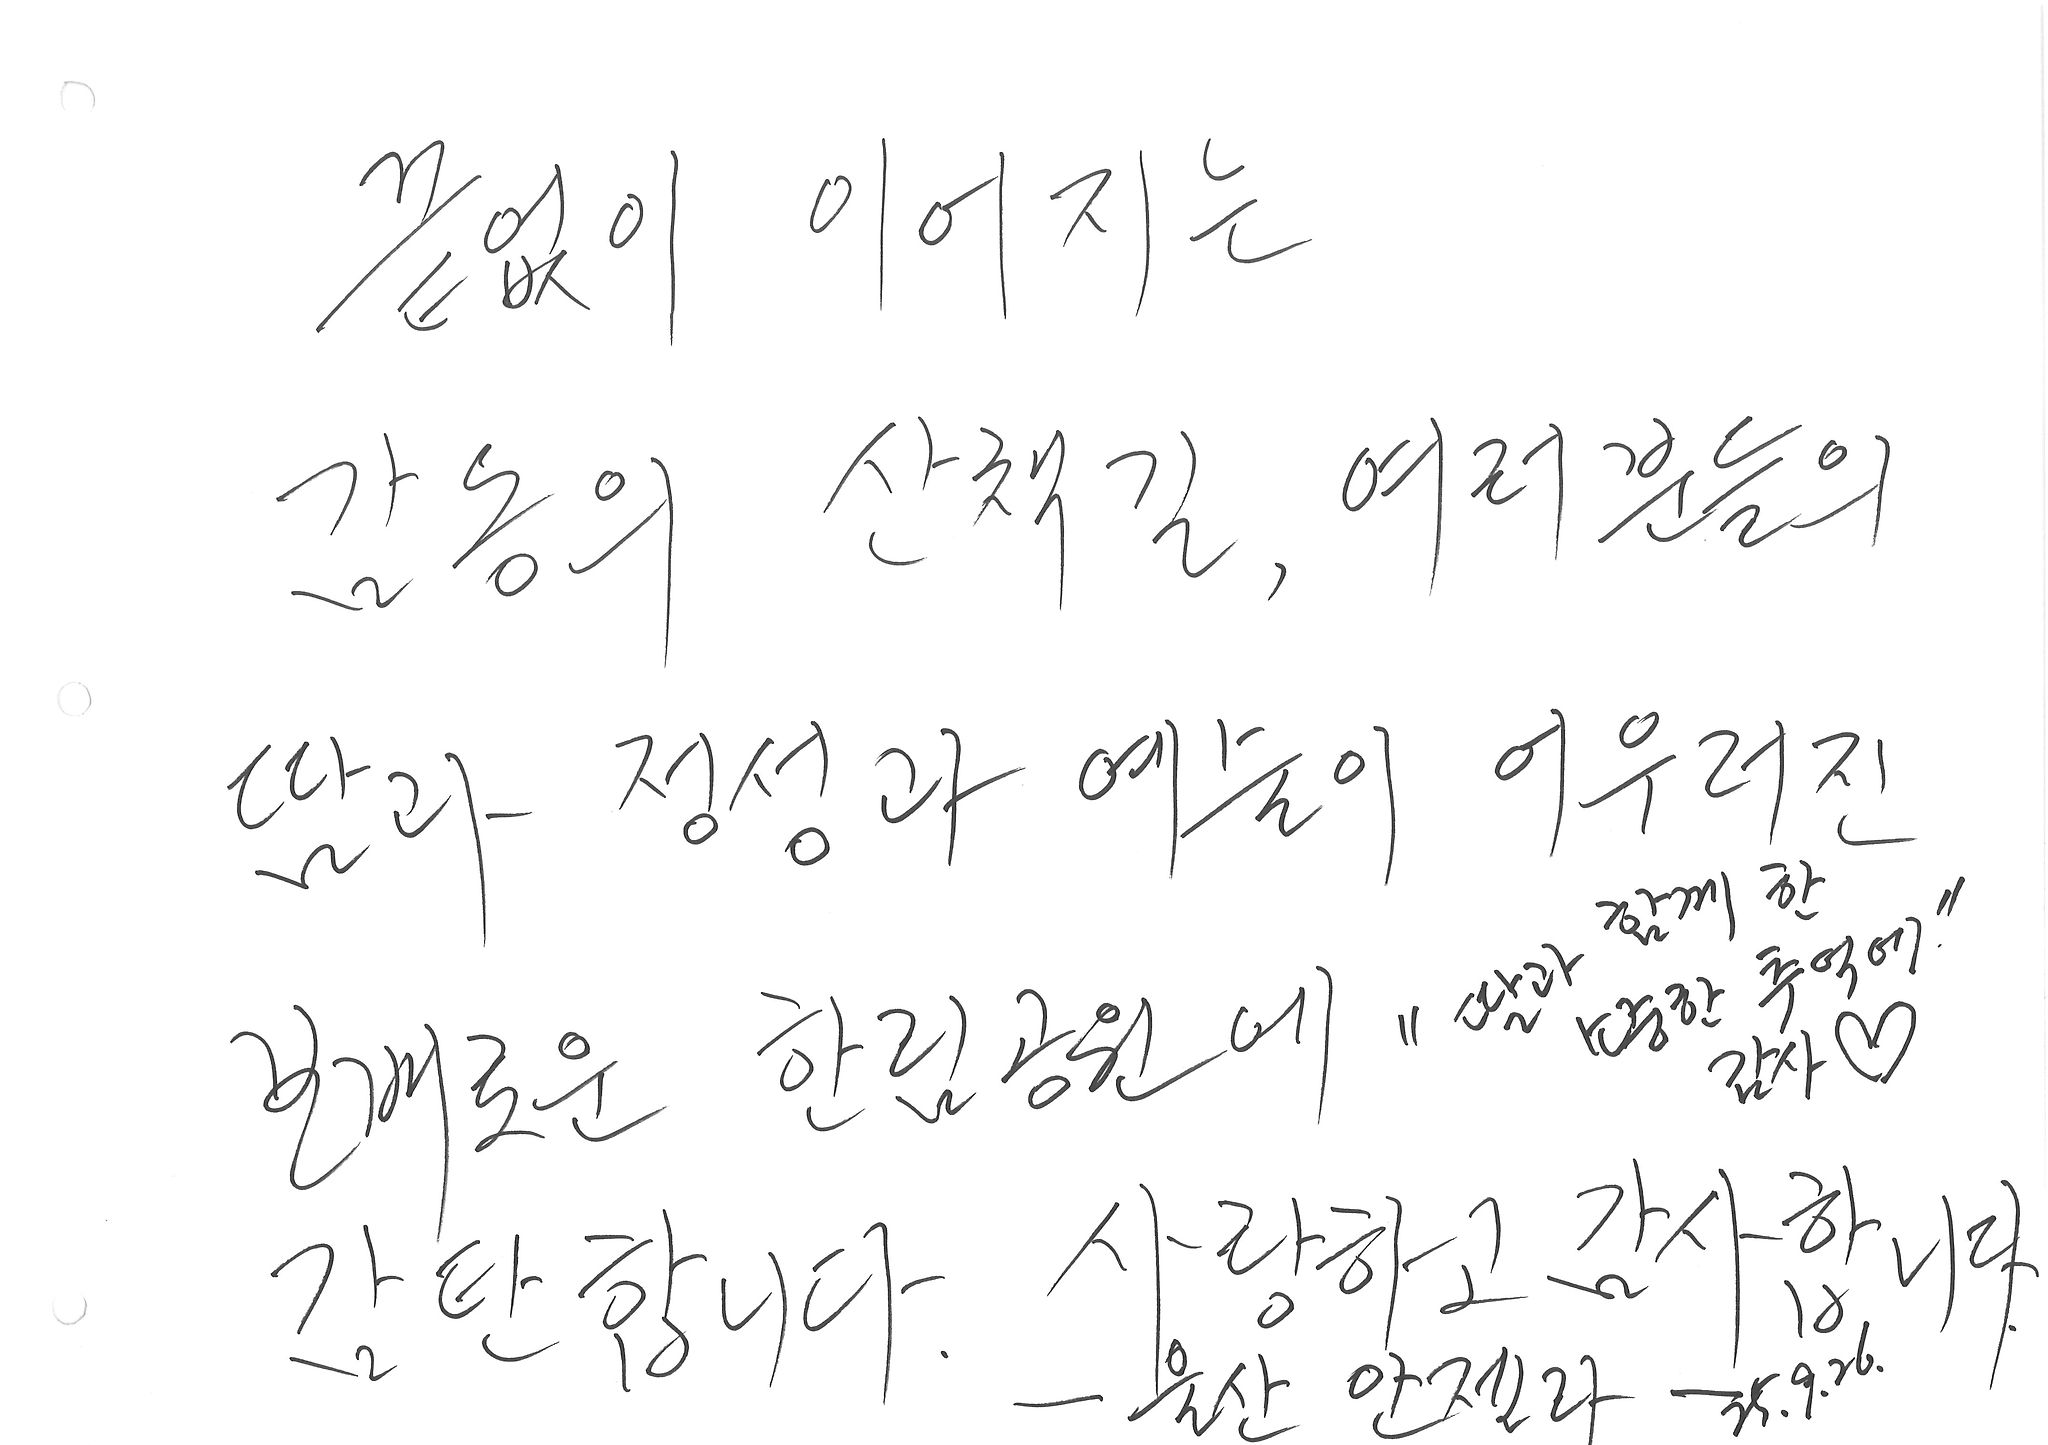 끝없이 이어지는
감동의 산책길, 여러분들의
땀과 정성과 예술이 어우러진
한림공원에
"딸과 함께 한
추억에"
감사♡
감탄합니다. 사랑하고 감사합니다.
— 울산 안젤라 — 25.9.26.